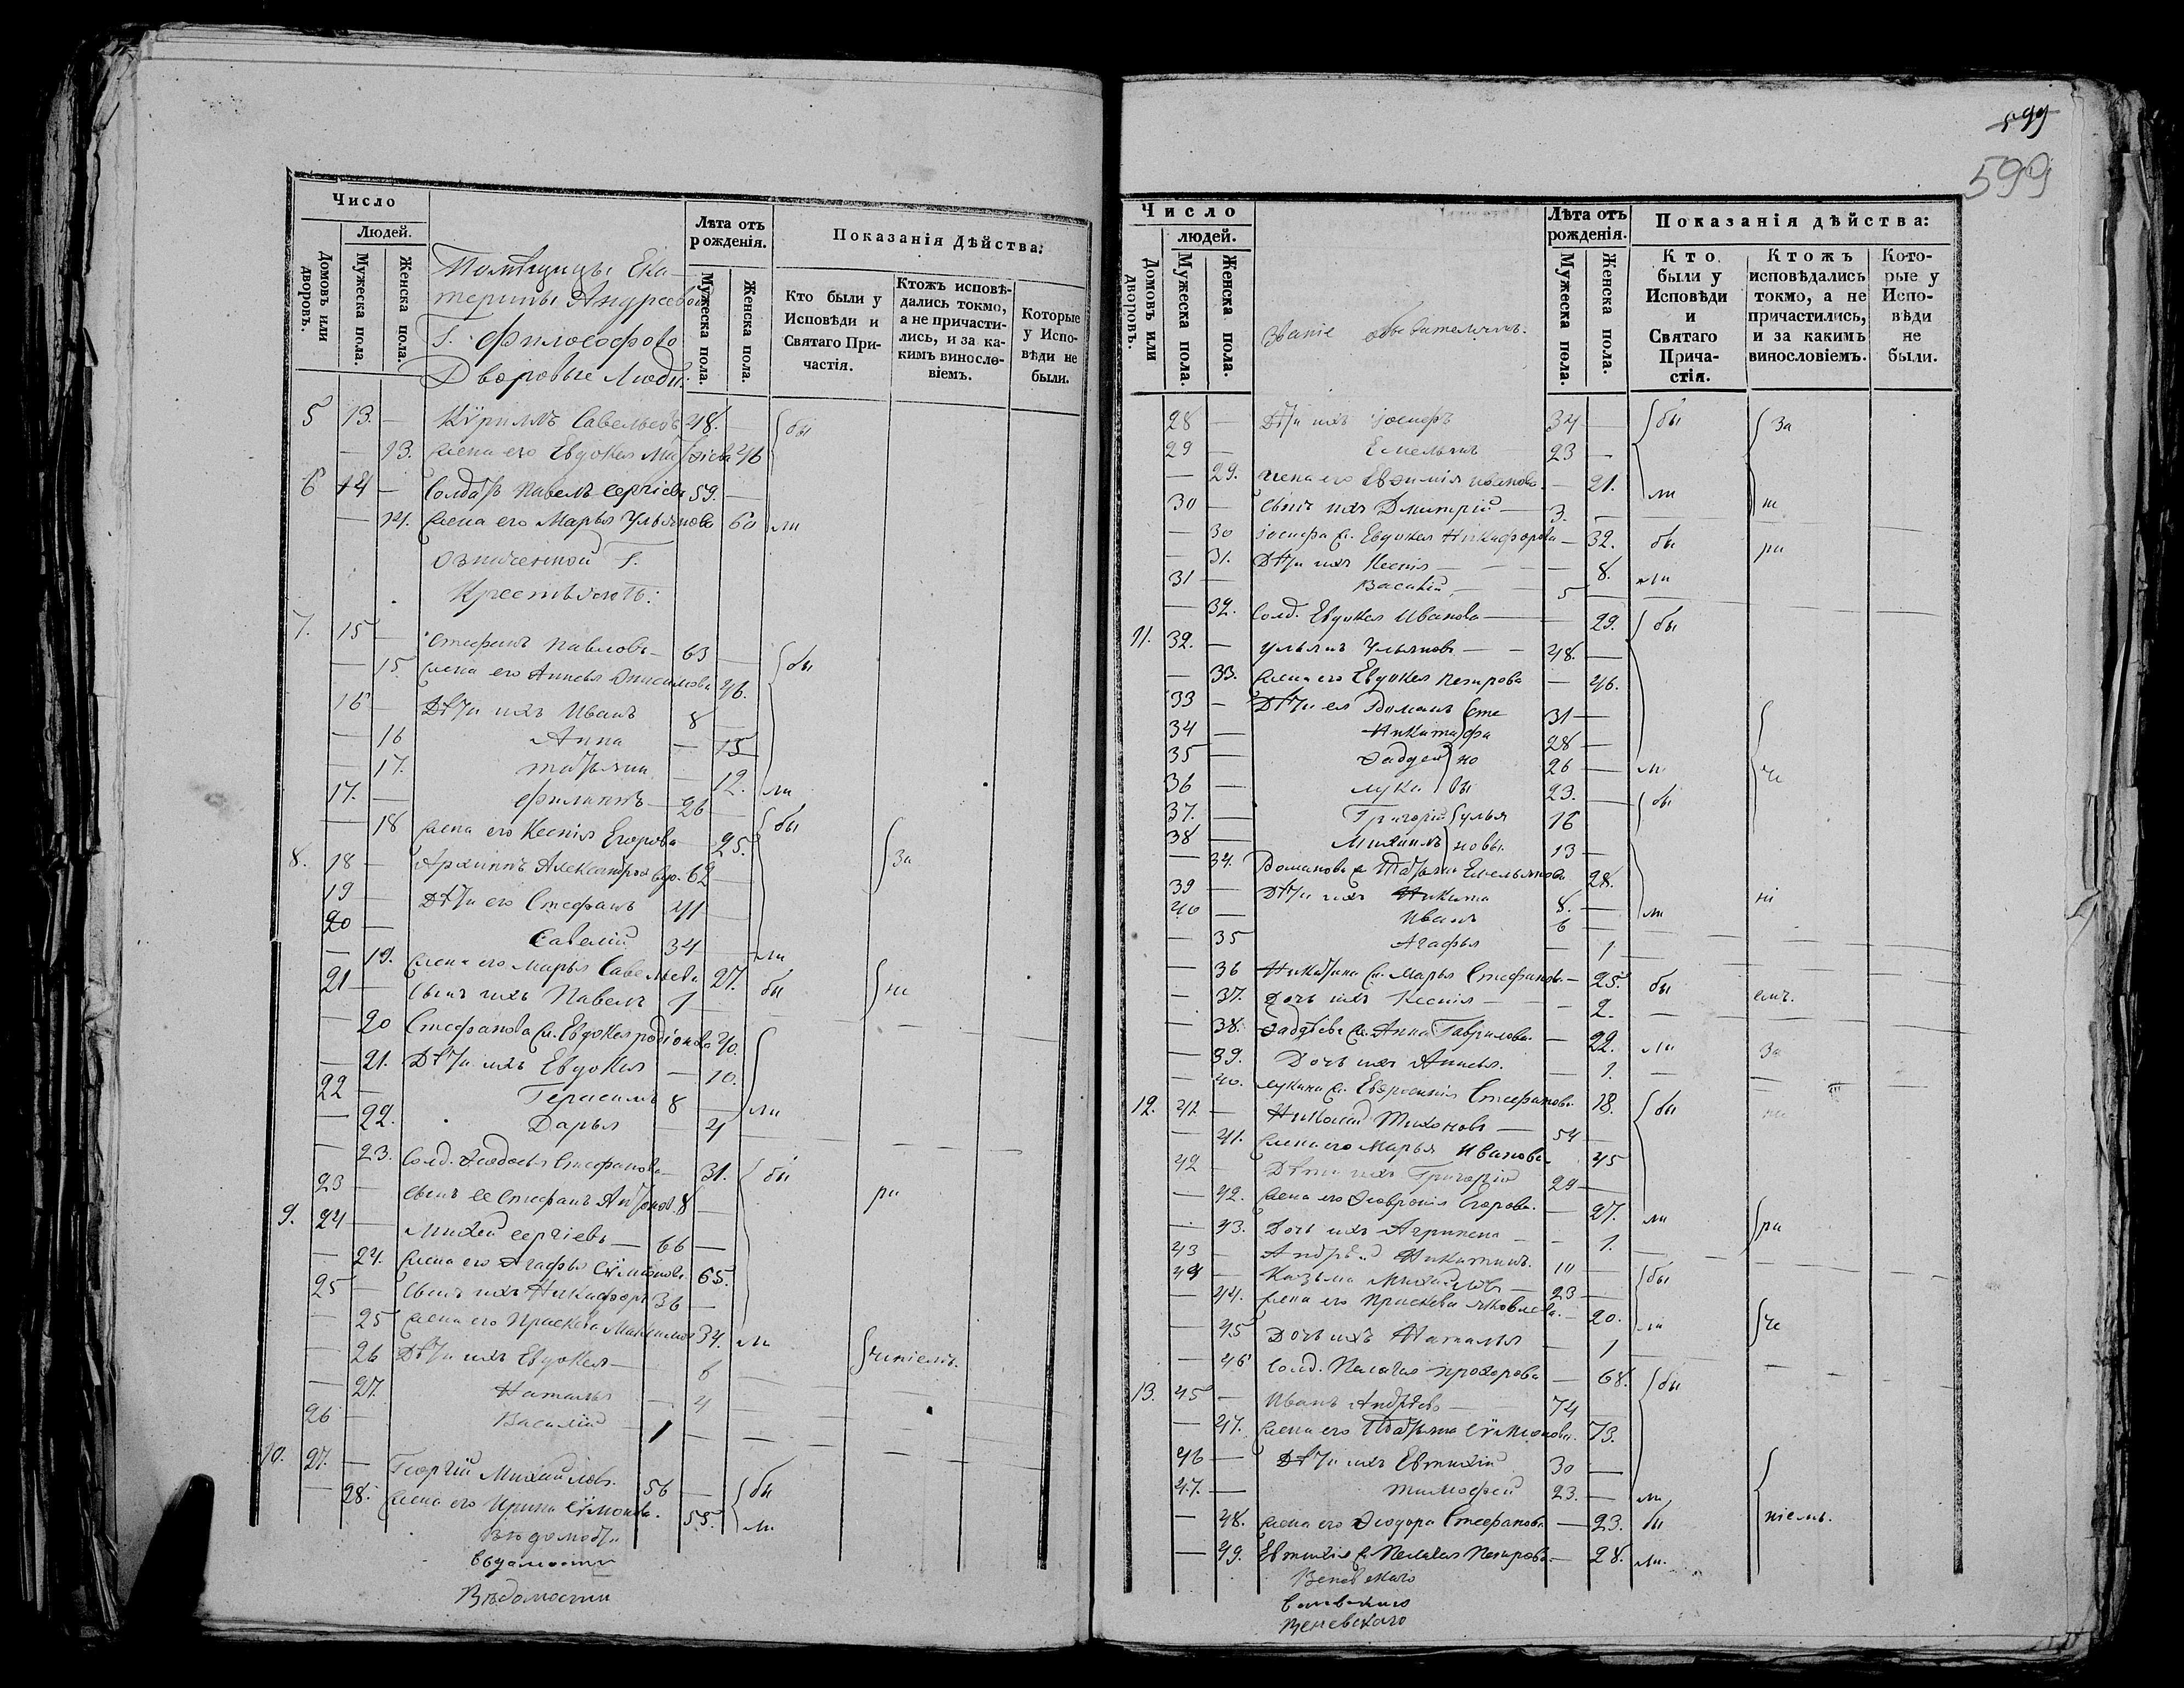 Число
Людей.
Домовъ или дворовъ.
Мужеска пола.
Женска пола.
Помѣщицы Ека-
терины Андреевой
Г. Философово
Дворовые Люди:
Лѣта отъ рожденія.
Мужеска пола.
Женска пола.
Показанія Дѣйства:
Кто были у Исповѣди и Святаго При-частія.
Ктожъ исповѣ-дались токмо, а не причасти-лись, и за ка-кимъ винosло-віемъ.
Которые у Испо-вѣди не были.
5 13. — Кѵриллъ Савельевъ 48. — бы
— 13. жена его Евдокея 46
6 14 — Солдатъ Павелъ Сергіевъ 59. —
— 14. жена его Марья Ульянова 60 ли
означенной Г.
Крестьяне
7. 15 — Стефанъ Павловъ — 63 — бы
— 15. жена его Анисья Анисимова 46.
16 — Дѣти ихъ Иванъ 8 —
— 16 Анна — 15
— 17. Татьяна — 12. ли
17. — Филиппъ — 26 — бы
— 18 жена его Ксенія Егорова 25.
8. 18 — Архиппъ Александровъ вдо. 62 — за
19 — Дѣти его Стефанъ 41 —
20 — Савелій 34 — ли
— 19. жена его Марья Савельева 27. бы
21 — сынъ ихъ Павелъ 1 — не
— 20 Стефанова ж. Евдокея Родіонова 40.
— 21. Дѣти ихъ Евдокея — 10.
22 — Герасимъ 8 — ли
— 22. Дарья — 4
— 23. Солд. Ѳеодосья Стефанова 31. бы
23 — сынъ ее Стефанъ Антонов. 8 — ра
9. 24 — Михей Сергіевъ — 66 —
— 24. жена его Агафья Сѵмонова 65.
25 — сынъ ихъ Никифоръ 36 —
— 25 жена его Прасковья Максимов 34. ли
— 26 Дѣти ихъ Евдокея — 6
— 27. Наталья — 4
26 — Василій — 1 —
10. 27. — Георгій Михайловъ. 56 — бы
— 28. жена его Ирина Сѵмонова. 55. ли
Вѣдомости
Вѣдомости
599
599
Число
людей.
Домовъ или дворовъ.
Мужеска пола.
Женска пола.
Званіе
Лѣта отъ рожденія.
Мужеска пола.
Женска пола.
Показанія дѣйства:
Кто были у Исповѣди и Святаго Прича-стія.
Ктожъ исповѣдались токмо, а не причастились, и за какимъ винословіемъ.
Кото-рые у Испо-вѣди не были.
28 — Дѣти ихъ Іосифъ 34 — бы за
29 — Емельянъ 23 —
— 29. жена его Евѳимія Иванова. — 21. ли
30 — сынъ ихъ Дмитрій — 3. —
— 30 Іосифа ж. Евдокея Никифорова — 32. бы
— 31. Дѣти ихъ Ксенія — — — 8. ли
31 — Василій — 5 —
— 32. Солд. Евдокея Иванова — 29. бы
11. 32. — Ульянъ Ульяновъ — — 48. —
— 33. жена его Евдокея Петрова — 46.
33 — Дѣти ея Романъ Сте 31 —
34 — Никита фа 28 —
35 — Ѳадѣей но 26 — ли че
36 — Лука вы 23. — бы
37. — Григорій улья 16
38 — Михаилъ новы. 13 —
— 34. Романова ж. Татьяна Емельянова 28.
39 — Дѣти ихъ Никита 8. — ли
40 — Иванъ 6 —
— 35 Агафья — 1
— 36 Никитина ж. Марья Стефанова — 25. бы
— 37. Дочь ихъ Ксенія — — 2.
— 38. Ѳадѣева ж. Анна Гаврилова — 22. ли за
— 39. Дочь ихъ Анисья. — 1.
— 40. Лукина ж. Евфросинія Стефанова. 18. бы
12. 41 — Николай Тихоновъ — 54 —
— 41. жена его Марья Иванова. 45
42 — Дѣти ихъ Григорій 29 —
— 42. жена его Ѳевронія Егорова. — 27. ли
— 43. Дочь ихъ Агрипена — — 1.
43 — Андрѣй Никитинъ. 10 —
44 — Казьма Михайловъ — 23 — бы
— 44. жена его Прасковья Яковлева. — 20. ли че
— 45 Дочь ихъ Наталья — 1
— 46 Солд. Пелагея Прохорова — 68. бы
13. 45 — Иванъ Андрѣевъ — 74 —
— 47. жена его Татьяна Сѵмонова. 73.
46 — Дѣти ихъ Евтихій 30 —
47. — Тимофей 23. — ли
— 48. жена его Ѳеодора Стефанова — 23. бы ніемъ.
— 49. Евтихія ж. Пелагея Петрова. — 28. ли.
Веневскаго
Веневскаго